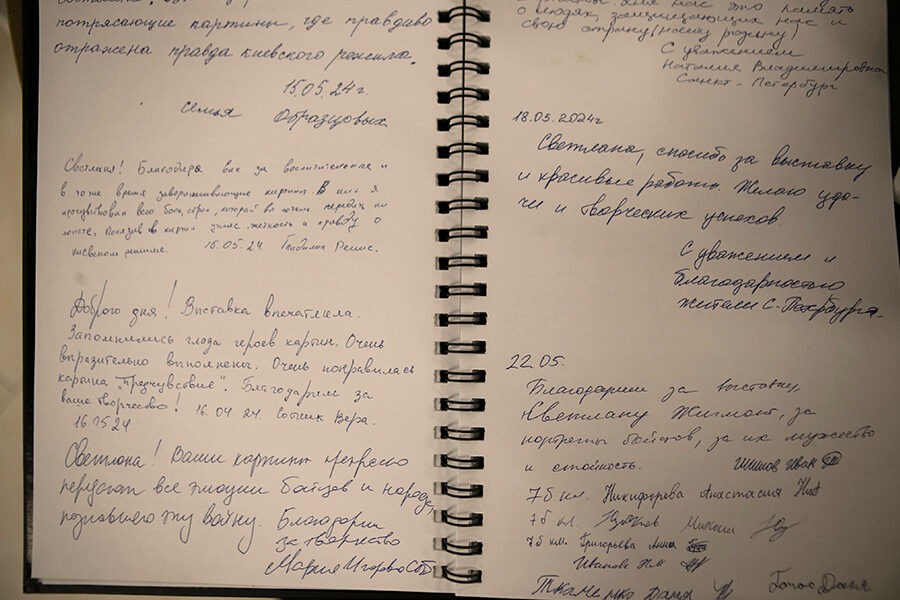 потрясающие картины, где правдиво
отражена правда киевского режима.
15.05.24г.
семья Образцовых
Светлана! Благодарю вас за восхитительные и
в то же время завораживающие картины. В них я
прочувствовал всю боль, страх, который вы хотели передать на
холсте. Показав в картинах ужас, жестокость и правду о
киевском режиме. 16.05.24
Доброго дня! Выставка впечатлила.
Запомнились глаза героев картин. Очень
выразительно выполнены. Очень понравилась
картина "Предчувствие". Благодарим за
ваше творчество! 16.04.24 Сотник Вера.
16.05.24
Светлана! Ваши картины
все эмоции бойцов и народа,
познавшего эту войну. Благодарим
за творчество
Мария Игоревна
это память
о людях, защищающих нас и
свою страну (нашу родину)
С уважением
Наталия Владимировна
Санкт-Петербург
18.05.2024г
Светлана, спасибо за выставку
и красивые работы. Желаю уда-
чи и творческих успехов.
С уважением и
благодарностью
жители С-Петербурга.
22.05.
Благодарим за выставку,
Светлану Жимонт, за
портреты бойцов, за их мужество
и стойкость. Шишов Иван
7б кл. Никифорова Анастасия
7б кл. Михаил
7б кл. Григорьева Анна
Иванов
Ткаченко Дана